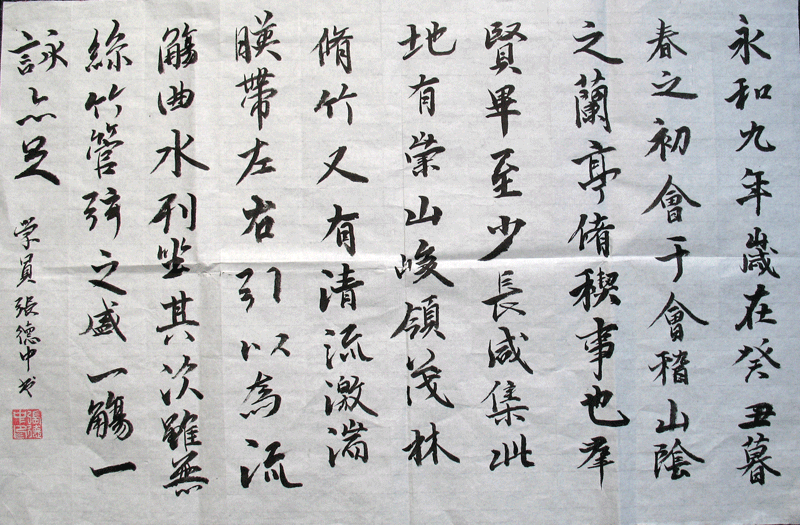 永和九年歲在癸丑暮
春之初會于會稽山陰
之蘭亭脩稧事也羣
賢畢至少長咸集此
地有崇山峻領茂林
脩竹又有清流激湍
暎帶左右引以為流
觴曲水列坐其次雖無
絲竹管弦之盛一觴一
詠亦足
学員張德中书
張德中印